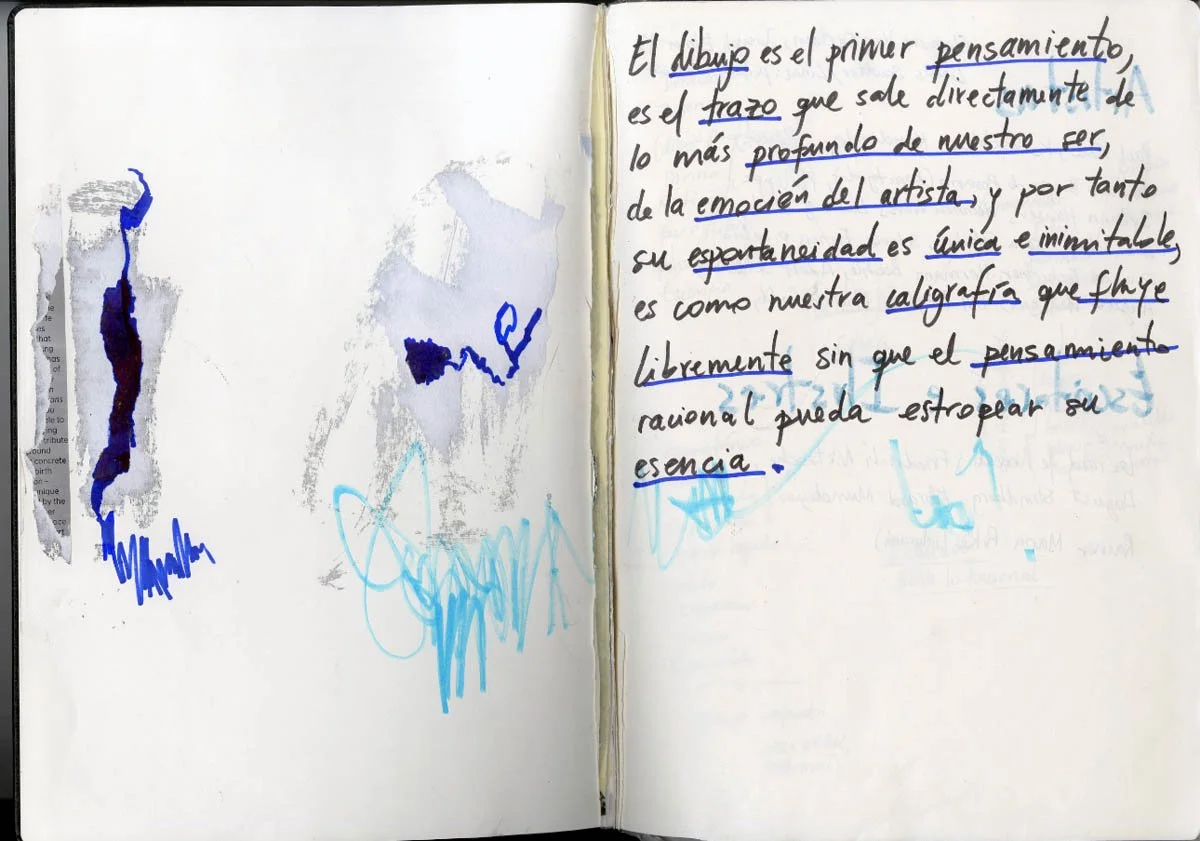 that
of
tribute
concrete
birth
by the
El dibujo es el primer pensamiento,
es el trazo que sale directamente de
lo más profundo de nuestro ser,
de la emoción del artista, y por tanto
su espontaneidad es única e inimitable,
es como nuestra caligrafía que fluye
libremente sin que el pensamiento
racional pueda estropear su
esencia.